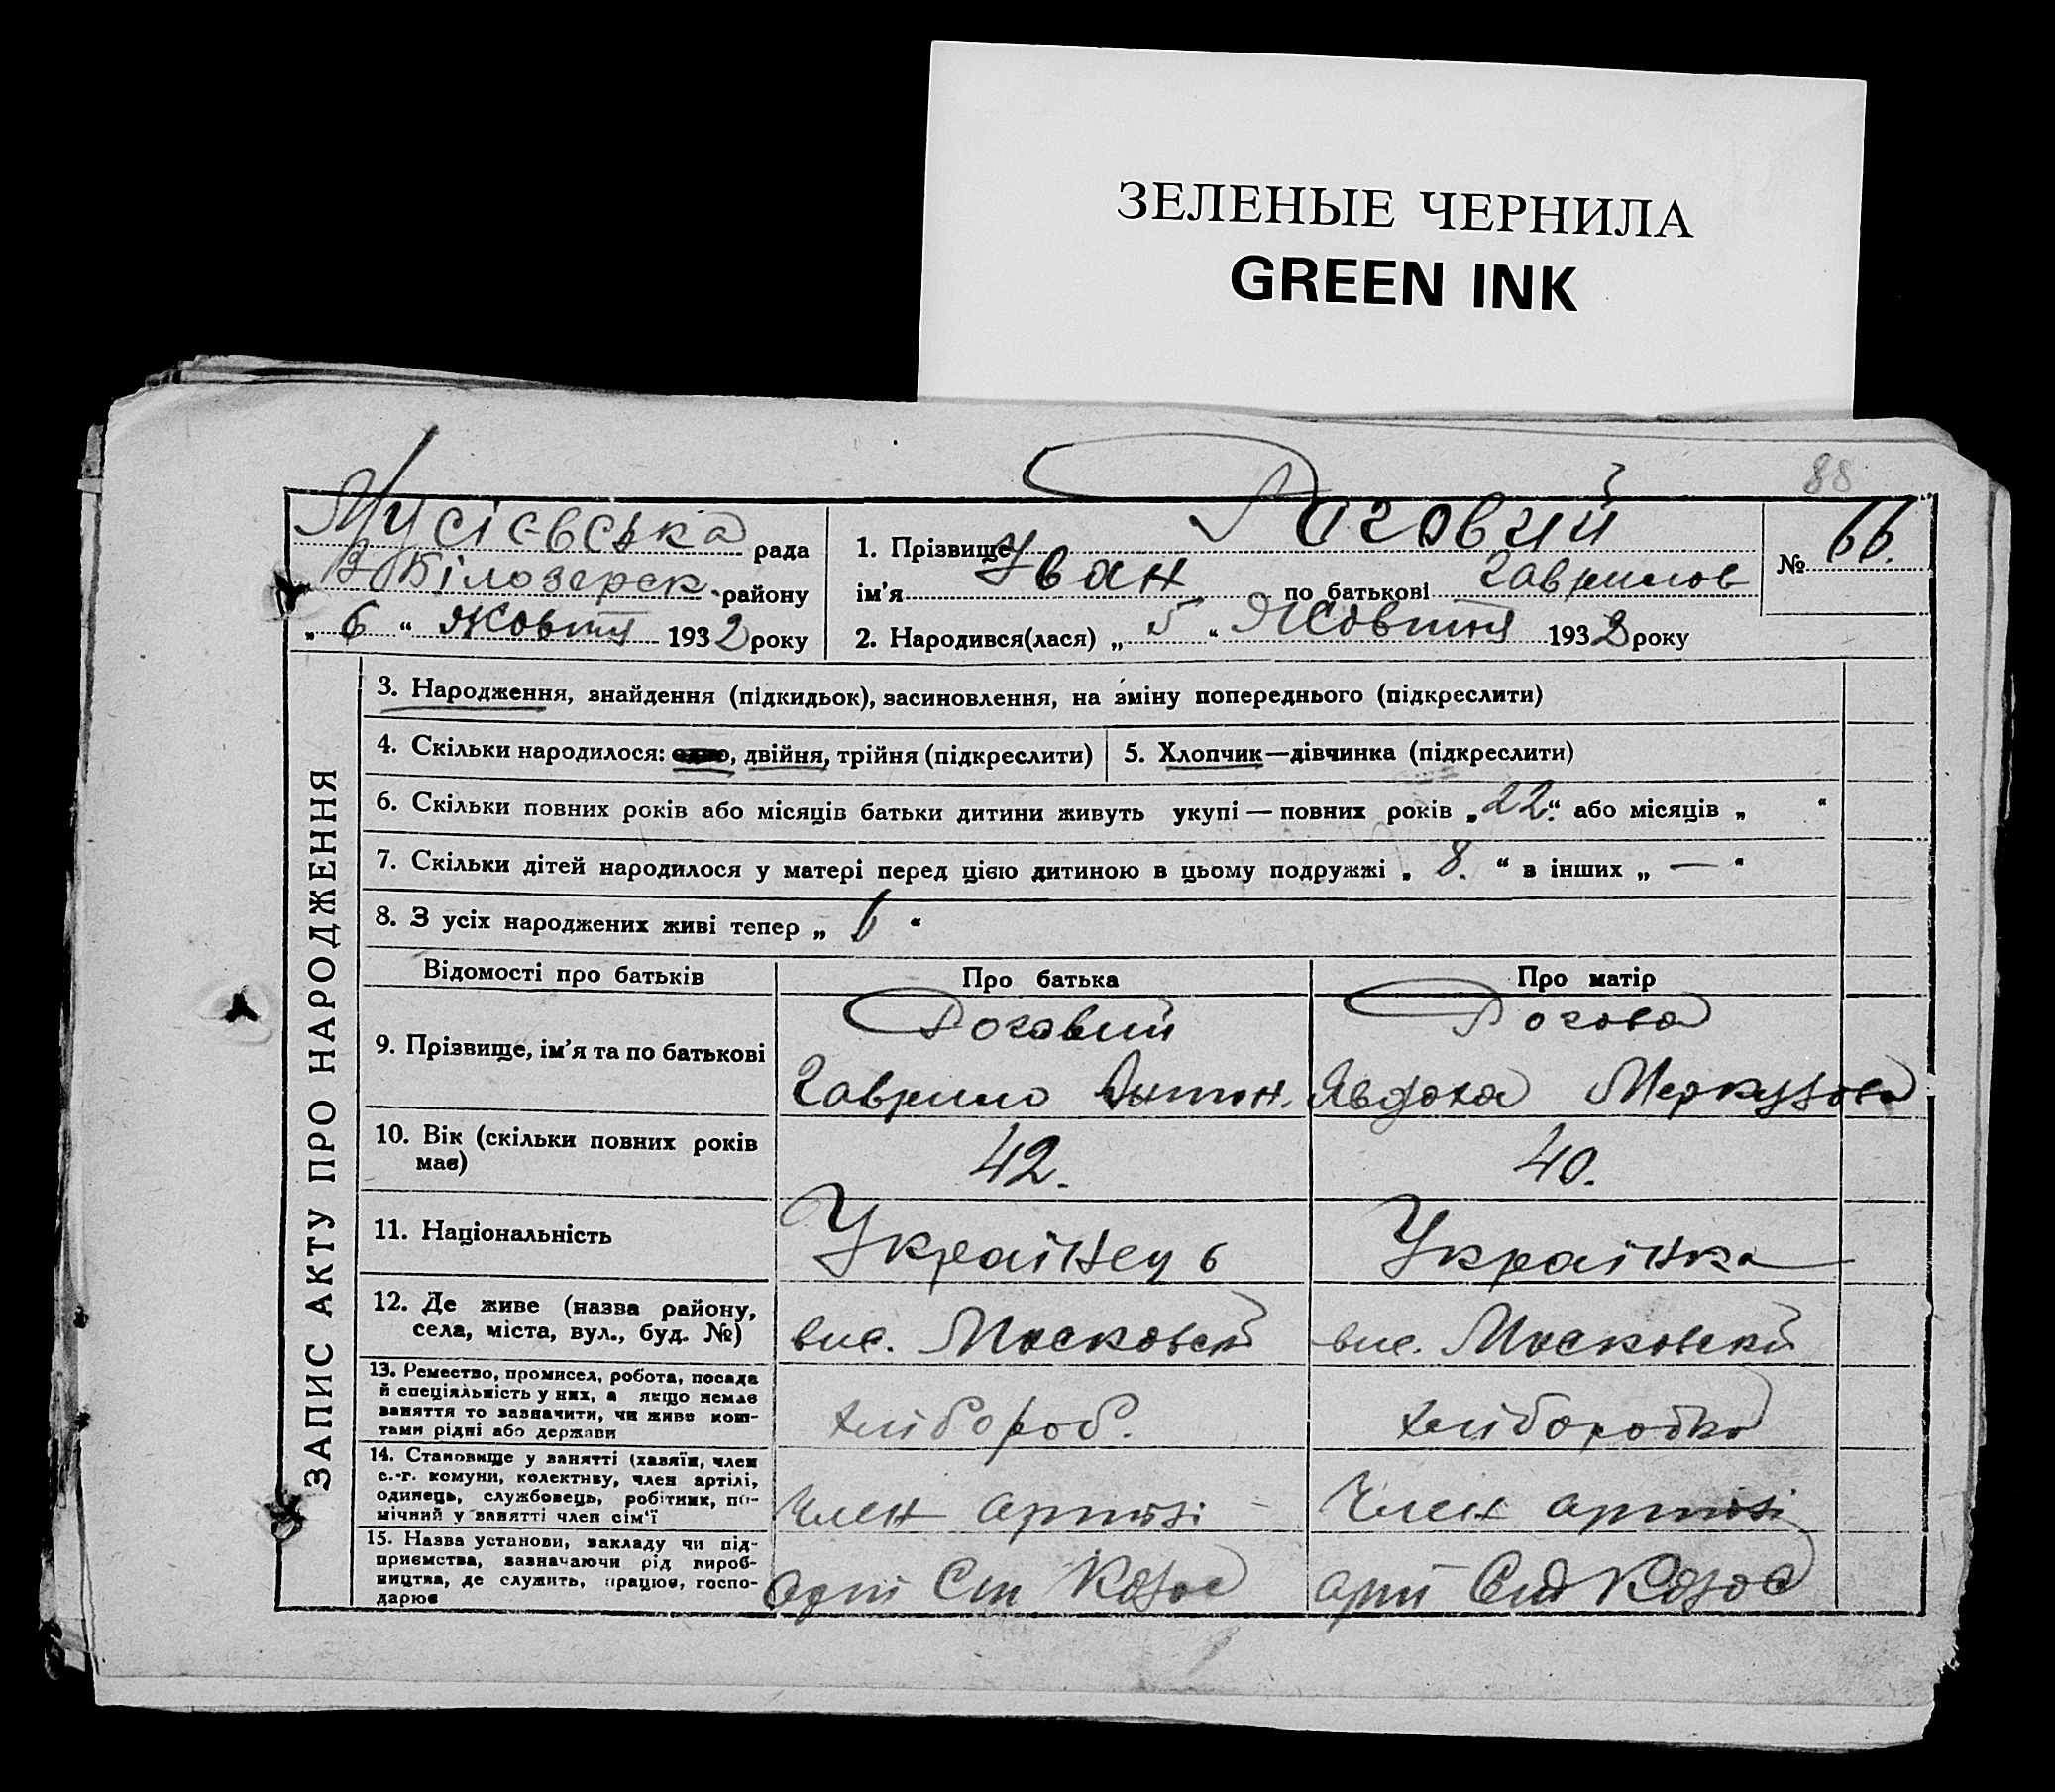 ЗЕЛЕНЫЕ ЧЕРНИЛА
GREEN INK
88
Мусієвська рада
В-Білозерск. району
„ 6 “ Жовтня 1932 року
1. Прізвище Роговий
ім'я Іван по батькові Гаврилов
№ 66.
2. Народився(лася) „ 5 “ Жовтня 1932 року
ЗАПИС АКТУ ПРО НАРОДЖЕННЯ
3. Народження, знайдення (підкидьок), засиновлення, на зміну попереднього (підкреслити)
4. Скільки народилося: одно, двійня, трійня (підкреслити) 5. Хлопчик—дівчинка (підкреслити)
6. Скільки повних років або місяців батьки дитини живуть укупі — повних років „22.“ або місяців „ “
7. Скільки дітей народилося у матері перед цією дитиною в цьому подружжі „ 8. “ в інших „ — “
8. З усіх народжених живі тепер „ 6 “
Відомості про батьків Про батька Про матір
9. Прізвище, ім'я та по батькові
Роговий Рогова
Гаврило Антон. Явдоха
10. Вік (скільки повних років має) 42. 40.
11. Національність Українець Українка
12. Де живе (назва району,
села, міста, вул., буд. №) вис. Московскій вис. Московскій
13. Ремество, промисел, робота, посада
й спеціяльність у них, а якщо немає
заняття то зазначити, чи живе кош-
тами рідні або держави
хлібороб. хліборобка
14. Становище у занятті (хазяїн, член
с.-г. комуни, колективу, член артілі,
одинець, службовець, робітник, по-
мічний у занятті член сім'ї
Член артілі Член артілі
15. Назва установи, закладу чи під-
приємства, зазначаючи рід вироб-
ництва, де служить, працює, госпо-
дарює